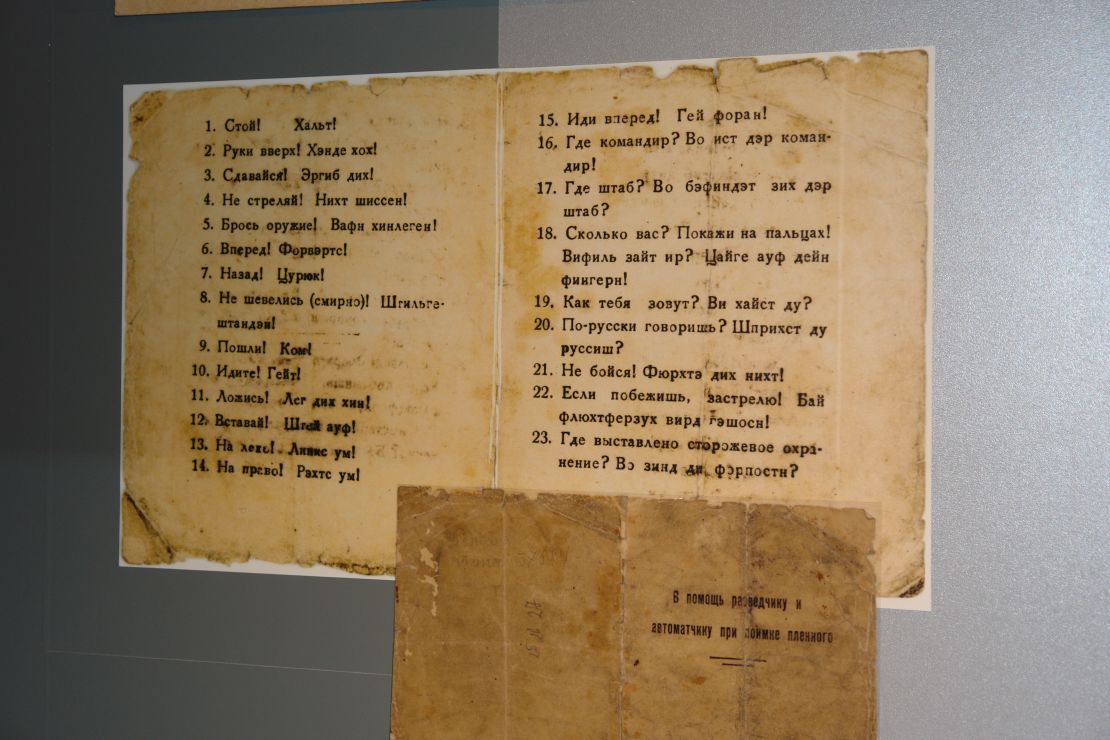 1. Стой! Хальт!
2. Руки вверх! Хэнде хох!
3. Сдавайся! Эргиб дих!
4. Не стреляй! Нихт шиссен!
5. Брось оружие! Вафн хинлеген!
6. Вперед! Форвэртс!
7. Назад! Цурюк!
8. Не шевелись (смирно)! Штильге-
штандэн!
9. Пошли! Ком!
10. Идите! Гейт!
11. Ложись! Лег дих хин!
12. Вставай! Штей ауф!
13. На лево! Линкс ум!
14. На право! Рэхтс ум!
15. Иди вперед! Гей форан!
16. Где командир? Во ист дэр коман-
дир!
17. Где штаб? Во бэфиндэт зих дэр
штаб?
18. Сколько вас? Покажи на пальцах!
Вифиль зайт ир? Цайге ауф дейн
фингерн!
19. Как тебя зовут? Ви хайст ду?
20. По-русски говоришь? Шприхст ду
руссиш?
21. Не бойся! Фюрхтэ дих нихт!
22. Если побежишь, застрелю! Бай
флюхтферзух вирд гэшосн!
23. Где выставлено сторожевое охра-
нение? Во зинд ди фэрпостн?
В помощь разведчику и
автоматчику при поимке пленного